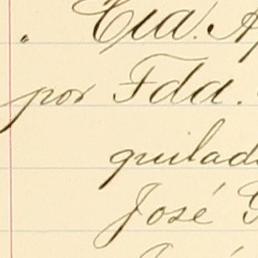 " Cia. A
por Fda.
quilad
José G
José